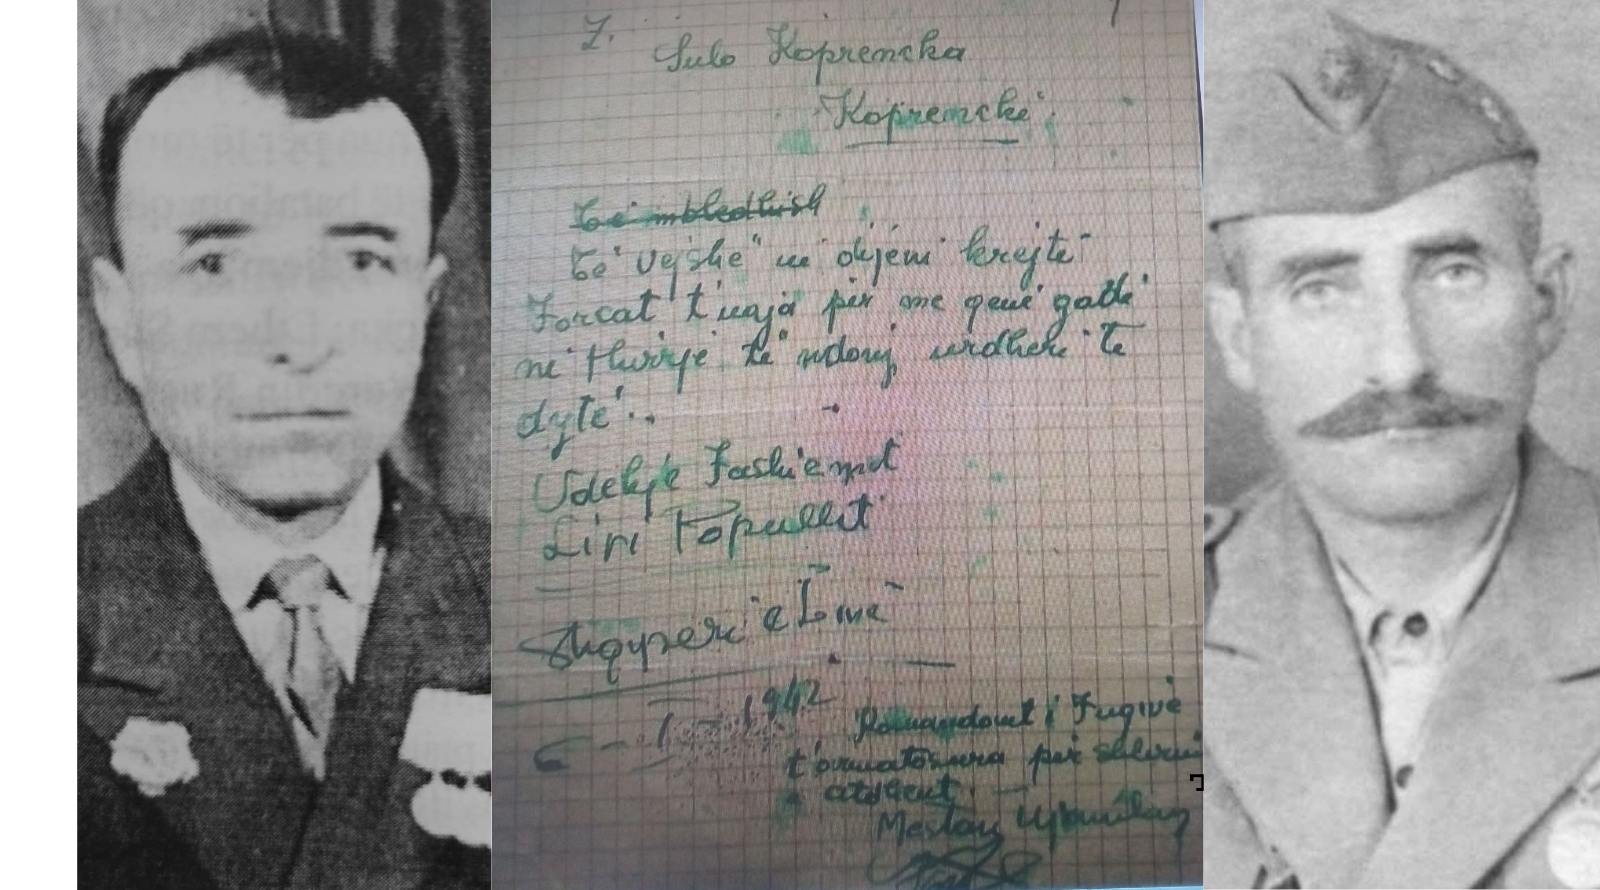 Z.
Sulo Koprencka
Koprenckë
të mbledhish
të vejshë në dijeni krejtë
Forcat t'uaja për me qenë gatë
në thirrje të ndonj urdhëri të
dytë..
Vdekje Fashizmit
Liri Popullit
Shqypëri e Lirë
1942
Komandant i Fuqive
t'armatosura për
atdheut.
Mestan